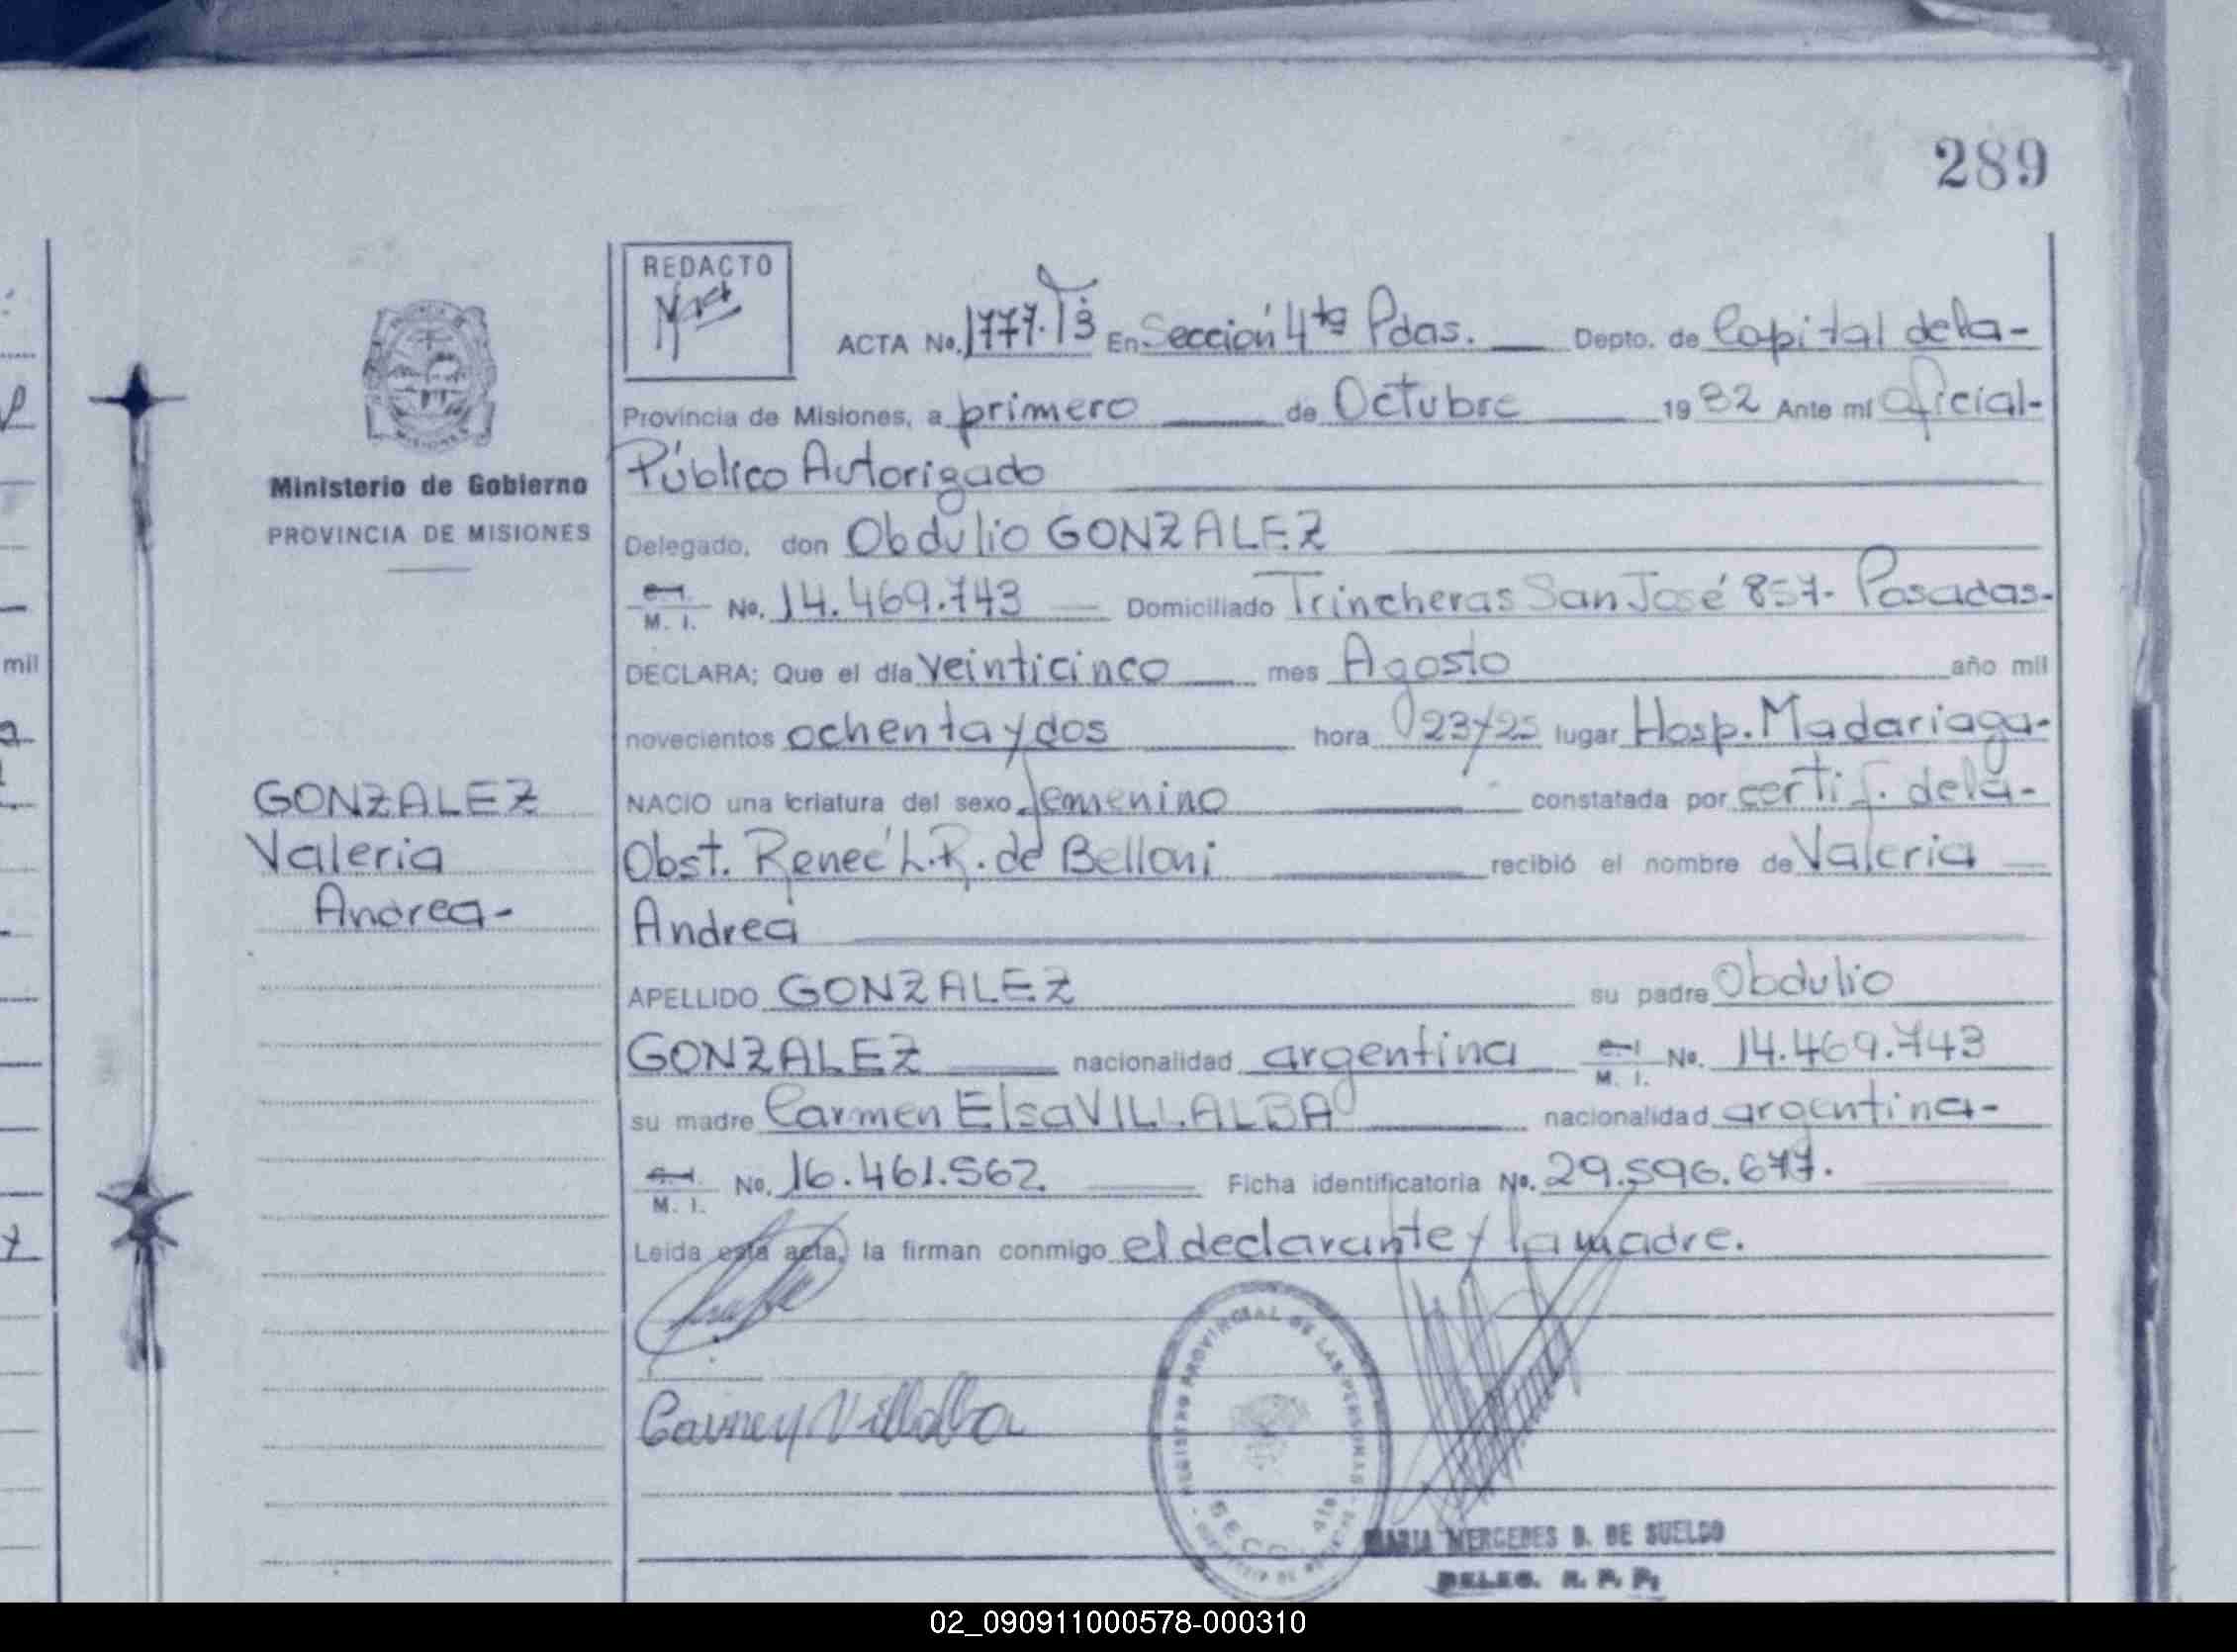 289
REDACTO
ACTA No. 1777.T3 En Sección 4ta Pdas. Depto. de Capital de la-
Provincia de Misiones, a primero de Octubre 1982 Ante mí Oficial-
Público Autorizado
Ministerio de Gobierno
PROVINCIA DE MISIONES
Delegado, don Obdulio GONZALEZ
M. I. No. 14.469.743 Domiciliado Trincheras San José 857- Posadas-
DECLARA: Que el día veinticinco mes Agosto año mil
novecientos ochenta y dos hora 23y25 lugar Hosp. Madariaga-
GONZALEZ
Valeria
Andrea-
NACIO una criatura del sexo femenino constatada por certif. de la-
Obst. Reneé L.R. de Belloni recibió el nombre de Valeria
Andrea
APELLIDO GONZALEZ su padre Obdulio
GONZALEZ nacionalidad argentina M. I. No. 14.469.743
su madre Carmen Elsa VILLALBA nacionalidad argentina-
M. I. No. 16.461.562 Ficha identificatoria No. 29.596.677.
Leida esta acta, la firman conmigo el declarante y la madre.
Carmen Villalba
REGISTRO PROVINCIAL DE LAS PERSONAS
SECC. 4ta
MARIA MERCEDES B. DE SUELDO
DELEG. R. P. P.
mil
02_090911000578-000310